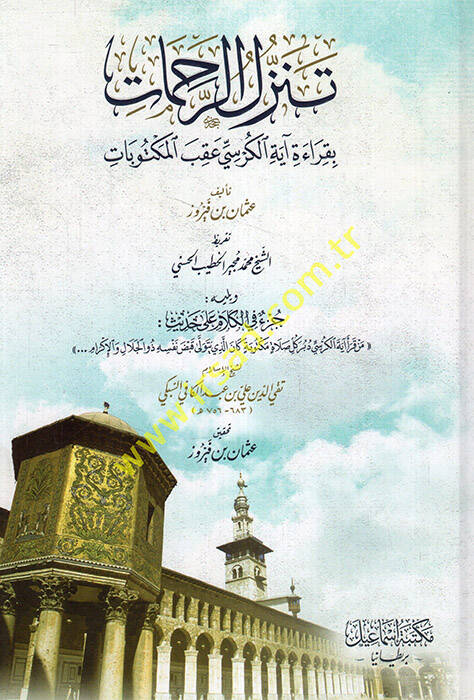 تَنَزُّلُ الرَّحَمَاتِ
بِقِرَاءَةِ آيَةِ الْكُرْسِيِّ عَقِبَ الْمَكْتُوبَاتِ
تأليف
عثمان بن فيروز
تقريظ
الشيخ محمد مجير الخطيب الحسني
ويليه:
جُزْءٌ فِي الْكَلَامِ عَلَى حَدِيثِ:
«مَنْ قَرَأَ آيَةَ الْكُرْسِيِّ دُبُرَ كُلِّ صَلَاةٍ مَكْتُوبَةٍ كَانَ الَّذِي يَتَوَلَّى قَبْضَ نَفْسِهِ ذُو الْجَلَالِ وَالْإِكْرَامِ ...»
لشيخ الإسلام
تقي الدين علي بن عبد الكافي السبكي
(٦٨٣-٧٥٦ هـ)
تحقيق
عثمان بن فيروز
مكتبة إسماعيل
- بريطانيا -